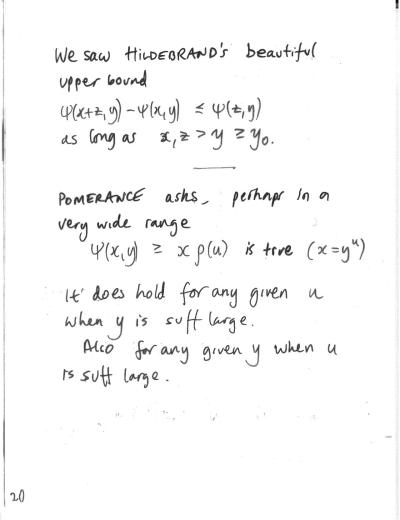 We saw HILDEBRAND's beautiful
upper bound
Ψ(x+z,y) - Ψ(x,y) ≤ Ψ(z,y)
as long as x,z > y ≥ y₀.
POMERANCE asks, perhaps in a
very wide range
Ψ(x,y) ≥ xρ(u) is true (x=yᵘ)
It does hold for any given u
when y is suff large.
Also for any given y when u
is suff large.
20